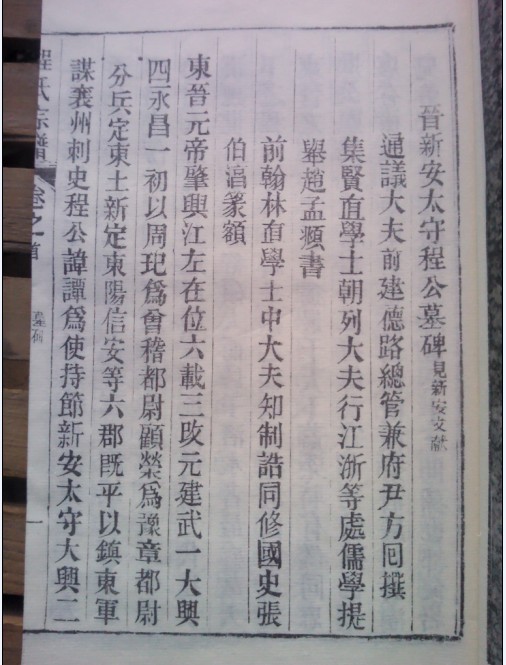 晉新安太守程公墓碑見新安文獻
通議大夫前建德路總管兼府尹方囘撰
集賢直學士朝列大夫行江浙等處儒學提
舉趙孟頫書
前翰林直學士中大夫知制誥同修國史張
伯淳篆額
東晉元帝肇興江左在位六載三攺元建武一大興
四永昌一初以周玘爲會稽都尉顧榮爲豫章都尉
分兵定東土新定東陽信安等六郡既平以鎮東軍
謀襄州刺史程公諱譚爲使持節新安太守大興二
程氏宗譜 卷之首 墓碑 一